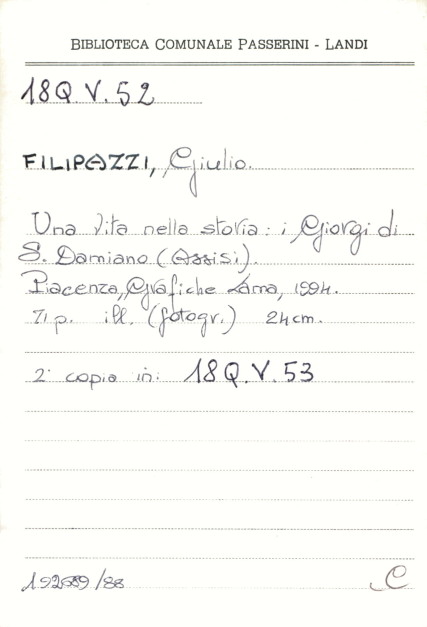 BIBLIOTECA COMUNALE PASSERINI - LANDI
18Q.V.52
FILIPAZZI, Giulio.
Una vita nella storia: i Giorgi di
S. Damiano (Assisi).
Piacenza, Grafiche Lama, 1994.
71 p. ill. (fotogr.) 24 cm.
2ª copia in: 18Q.V.53
C